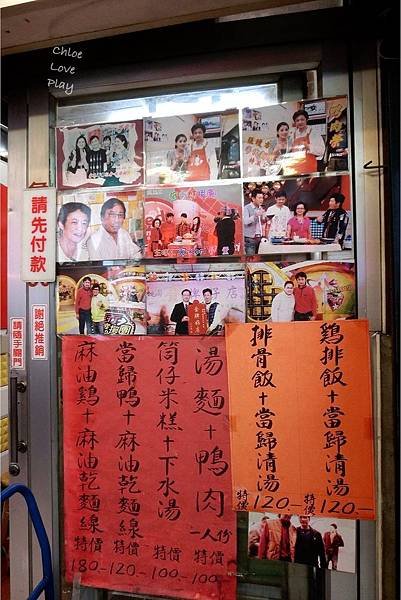 Chloe
Love
Play
請先付款
謝絕推銷
請隨手關門
鷄排飯+當歸清湯
特價120.-
排骨飯+當歸清湯
特價120.-
湯麵+鴨肉一人份
特價100-
筒仔米糕+下水湯
特價100-
當歸鴨+麻油乾麵線
特價120-
麻油鷄+麻油乾麵線
特價180-